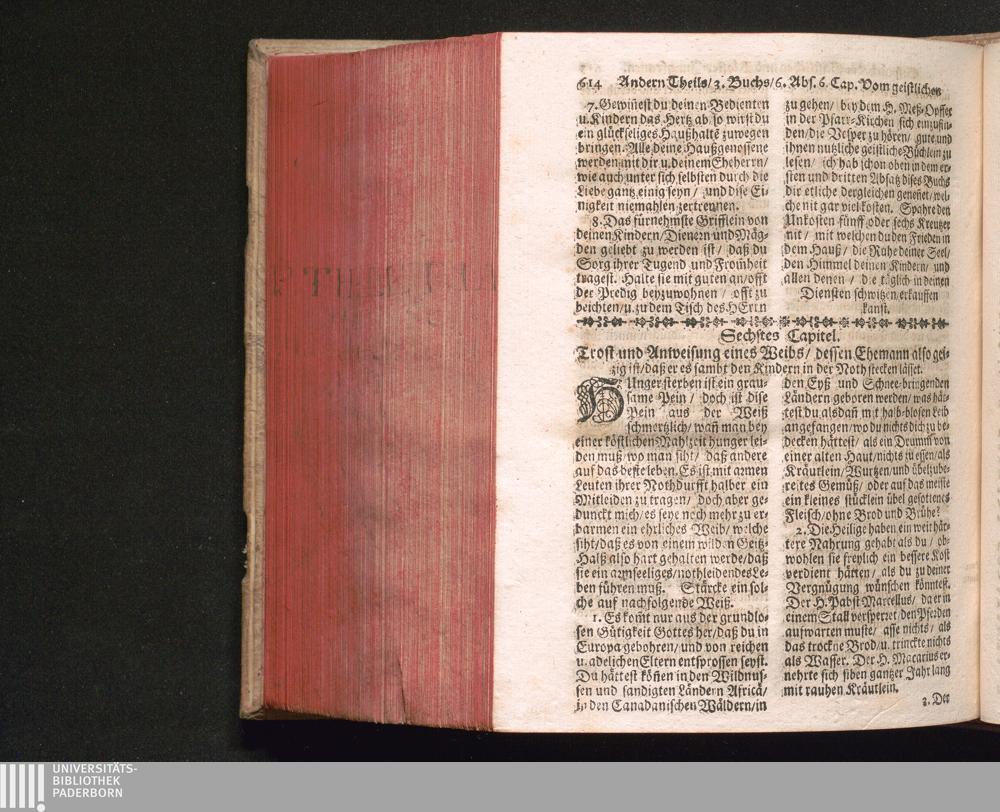 614 Andern Theils/ 3. Buchs/ 6. Abs. 6. Cap. Vom geistlichen
7. Gewiñest du deinen Bedienten
u. Kindern das Hertz ab/ so wirst du
ein glückseliges Haußhaltẽ zuwegen
bringen. Alle deine Haußgenossene
werden mit dir u. deinem Eheherrn/
wie auch unter sich selbsten durch die
Liebe gantz einig seyn/ und dise Ei-
nigkeit niemahlen zertrennen.
8. Das fürnehmste Grifflein von
deinen Kindern/ Dienern und Mäg-
den geliebt zu werden ist/ daß du
Sorg ihrer Tugend und From̃heit
tragest. Halte sie mit guten an/ offt
der Predig beyzuwohnen/ offt zu
beichten/ u. zu dem Tisch des HErrn
zu gehen/ bey dem H. Meß-Opffer
in der Pfarr-Kirchen sich einzufin-
den/ die Vesper zu hören/ gute und
ihnen nutzliche geistliche Büchlein zu
lesen/ ich hab schon oben in dem er-
sten und dritten Absatz dises Buchs
dir etliche dergleichen geneñet/ wel-
che nit gar viel kosten. Spahre den
Unkosten fünff oder sechs Kreutzer
nit/ mit welchen du den Frieden in
dem Hauß/ die Ruhe deiner Seel/
den Himmel deinen Kindern/ und
allen denen/ die täglich in deinen
Diensten schwitzen/ erkauffen
kanst.
Sechstes Capitel.
Trost und Antweisung eines Weibs/ dessen Ehemann also gei-
tzig ist/ daß er es sambt den Kindern in der Noth stecken lässet.
HUnger sterben ist ein grau-
same Pein/ doch ist dise
Pein aus der Weiß
schmertzlich/ wañ man bey
einer köstlichen Mahlzeit hunger lei-
den muß/ wo man siht/ daß andere
auf das beste leben. Es ist mit armen
Leuten ihrer Nothdurfft halber ein
Mitleiden zu tragen/ doch aber ge-
dunckt mich/ es seye noch mehr zu er-
barmen ein ehrliches Weib/ welche
siht/ daß es von einem wilden Geitz-
Halß also hart gehalten werde/ daß
sie ein armseeliges/ nothleidendes Le-
ben führen muß. Stärcke ein sol-
che auf nachfolgende Weiß.
1. Es kom̃t nur aus der grundlo-
sen Gütigkeit Gottes her/ daß du in
Europa gebohren/ und von reichen
u. adelichen Eltern entsprossen seyst.
Du hättest köñen in den Wildnus-
sen und sandigten Ländern Africä/
in den Canadanischen Wäldern/ in
den Eyß und Schnee-bringenden
Ländern geboren werden/ was hät-
test du alsdañ mit halb-blosen Leib
angefangen/ wo du nichts dich zu be-
decken hättest/ als ein Drumm von
einer alten Haut/ nichts zu essen/ als
Kräutlein/ Wurtzen/ und übel zube-
reites Gemüß/ oder auf das meiste
ein kleines stücklein übel gesottenes
Fleisch/ ohne Brod und Brühe?
2. Die Heilige haben ein weit här-
tere Nahrung gehabt als du/ ob-
wohlen sie freylich ein bessere Kost
verdient hätten/ als du zu deiner
Vergnügung wünschen könntest.
Der H. Pabst Marcellus/ da er in
einem Stall versperret/ den Pferden
aufwarten muste/ asse nichts/ als
das trockne Brod/ u. trinckte nichts
als Wasser. Der H. Macarius er-
nehrte sich siben gantzer Jahr lang
mit rauhen Kräutlein.
3. Der
UNIVERSITÄTS-
BIBLIOTHEK
PADERBORN